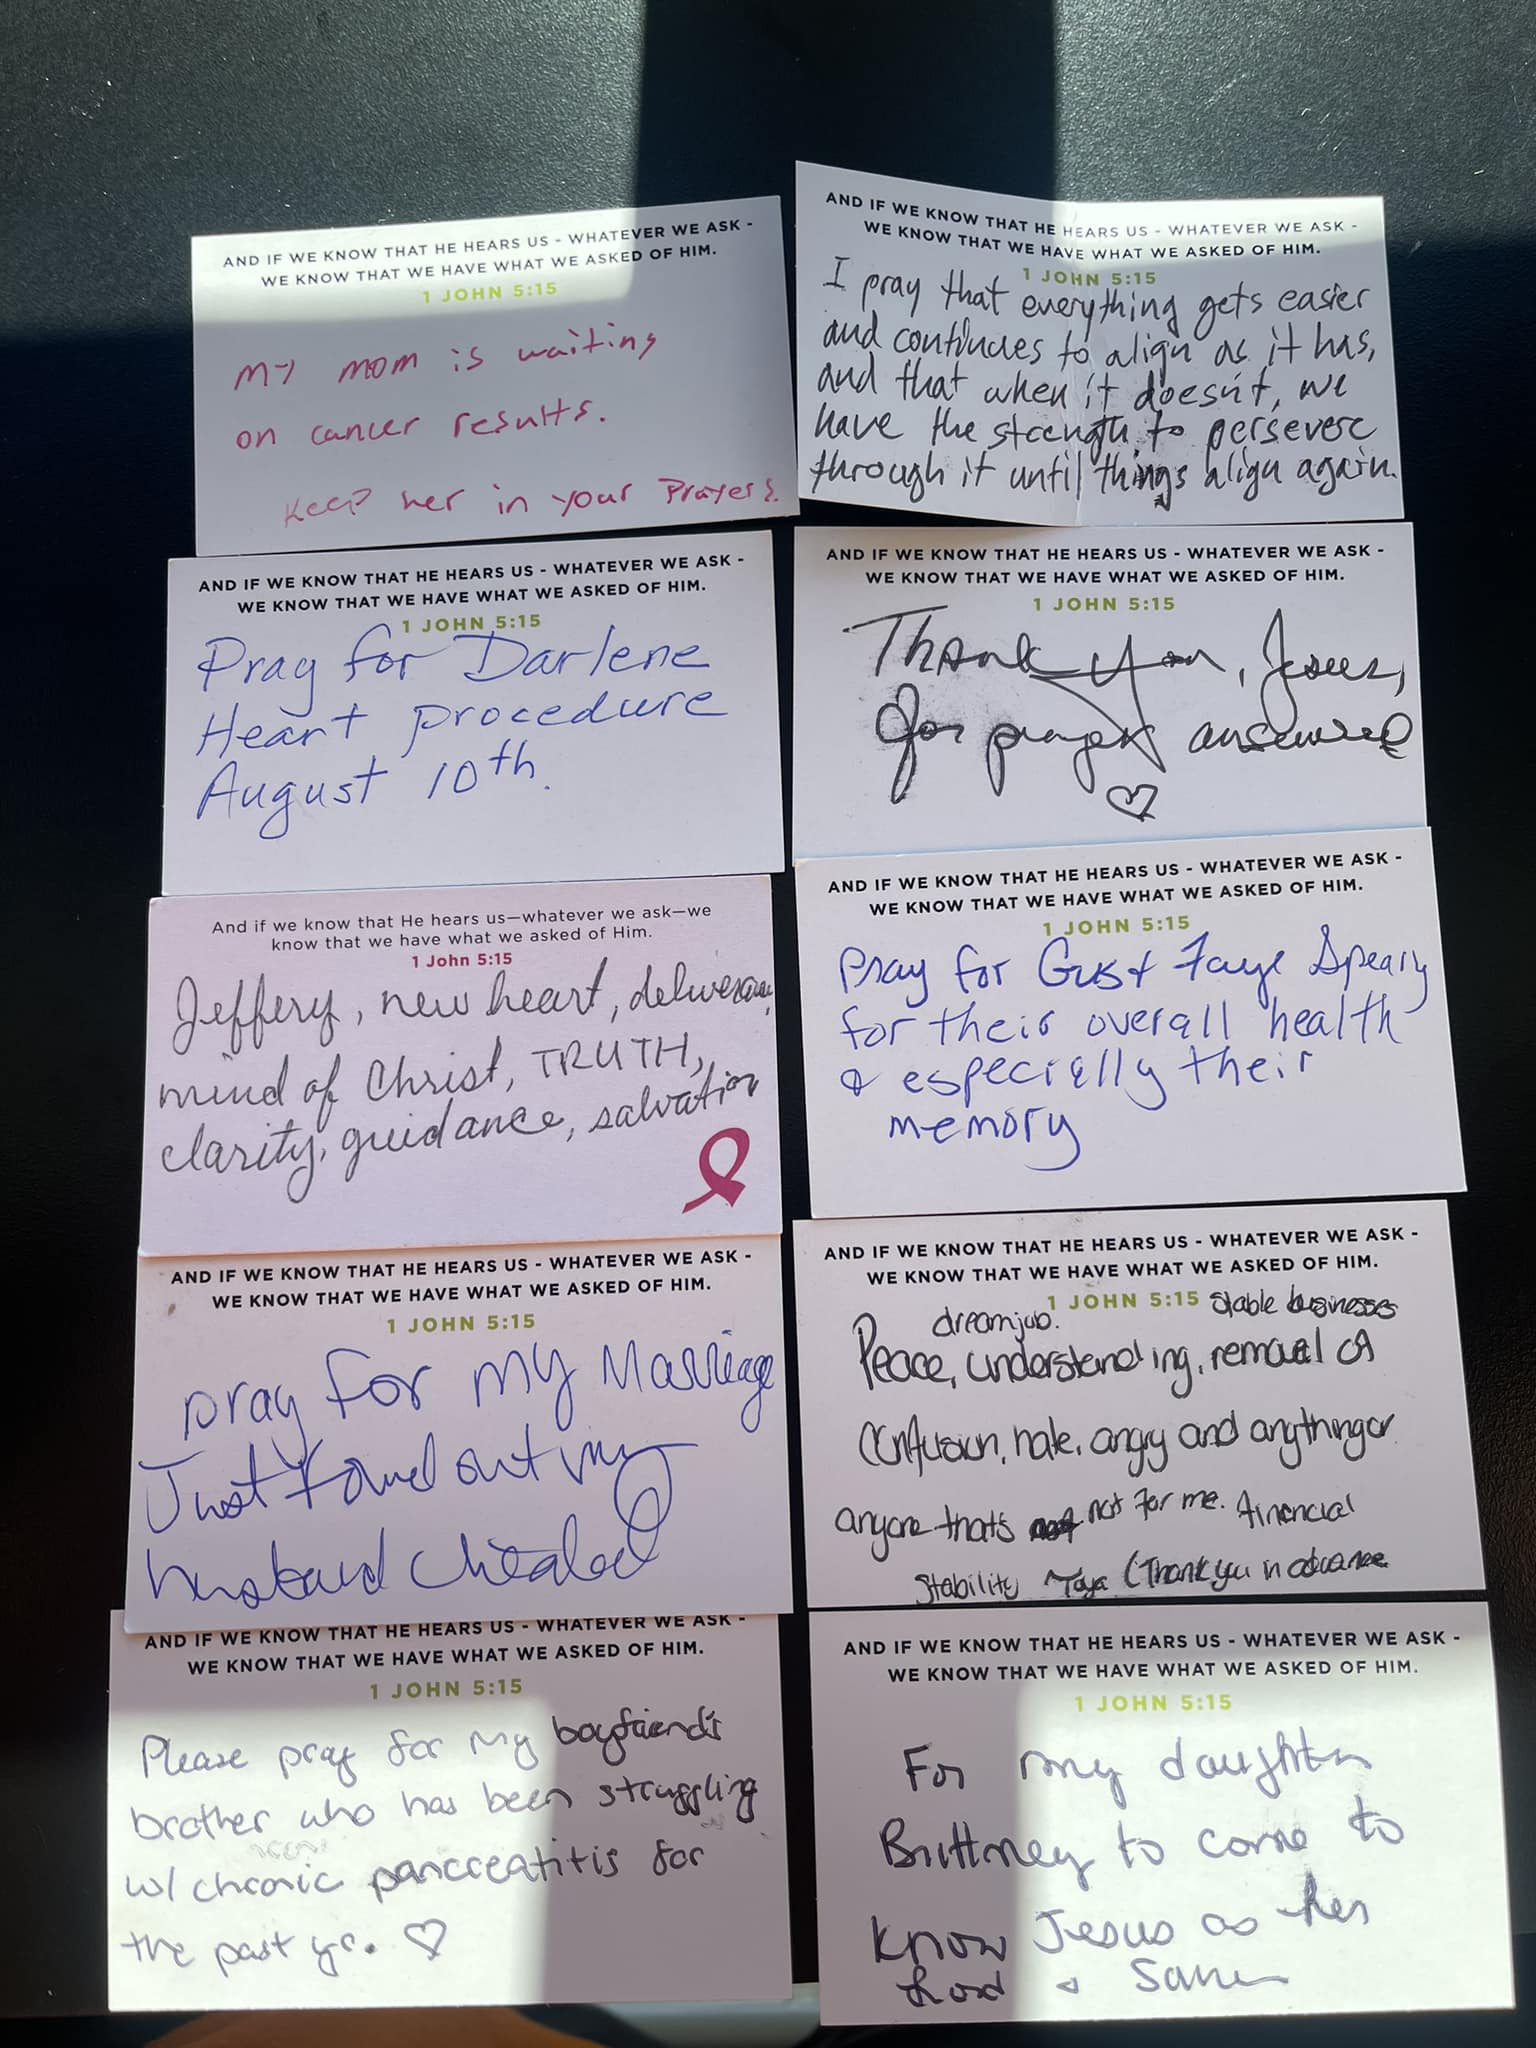 AND IF WE KNOW THAT HE HEARS US - WHATEVER WE ASK -
WE KNOW THAT WE HAVE WHAT WE ASKED OF HIM.
1 JOHN 5:15
My mom is waiting
on cancer results.
Keep her in your Prayers.
AND IF WE KNOW THAT HE HEARS US - WHATEVER WE ASK -
WE KNOW THAT WE HAVE WHAT WE ASKED OF HIM.
1 JOHN 5:15
I pray that everything gets easier
and continues to align as it has,
and that when it doesn't, we
have the strength to persevere
through it until things align again.
AND IF WE KNOW THAT HE HEARS US - WHATEVER WE ASK -
WE KNOW THAT WE HAVE WHAT WE ASKED OF HIM.
1 JOHN 5:15
Pray for Darlene
Heart procedure
August 10th.
AND IF WE KNOW THAT HE HEARS US - WHATEVER WE ASK -
WE KNOW THAT WE HAVE WHAT WE ASKED OF HIM.
1 JOHN 5:15
Thank you, Jesus,
for prayers answered
And if we know that He hears us—whatever we ask—we
know that we have what we asked of Him.
1 John 5:15
Jeffery, new heart, deliverance,
mind of Christ, TRUTH,
clarity, guidance, salvation
AND IF WE KNOW THAT HE HEARS US - WHATEVER WE ASK -
WE KNOW THAT WE HAVE WHAT WE ASKED OF HIM.
1 JOHN 5:15
Pray for Gus & Faye Speary
for their overall health
& especially their
memory
AND IF WE KNOW THAT HE HEARS US - WHATEVER WE ASK -
WE KNOW THAT WE HAVE WHAT WE ASKED OF HIM.
1 JOHN 5:15
pray for my Marriage
Just found out my
husband cheated
AND IF WE KNOW THAT HE HEARS US - WHATEVER WE ASK -
WE KNOW THAT WE HAVE WHAT WE ASKED OF HIM.
1 JOHN 5:15
dreamjob. stable businesses
Peace, understanding, removal of
confusion, hate, angry and anything or
anyone that's not for me. financial
stability Toya (Thank you in advance
AND IF WE KNOW THAT HE HEARS US - WHATEVER WE ASK -
WE KNOW THAT WE HAVE WHAT WE ASKED OF HIM.
1 JOHN 5:15
Please pray for my boyfriend's
brother who has been struggling
w/ chronic pancreatitis for
the past yr.
AND IF WE KNOW THAT HE HEARS US - WHATEVER WE ASK -
WE KNOW THAT WE HAVE WHAT WE ASKED OF HIM.
1 JOHN 5:15
For my daughter
Brittney to come to
know Jesus as her
Lord &